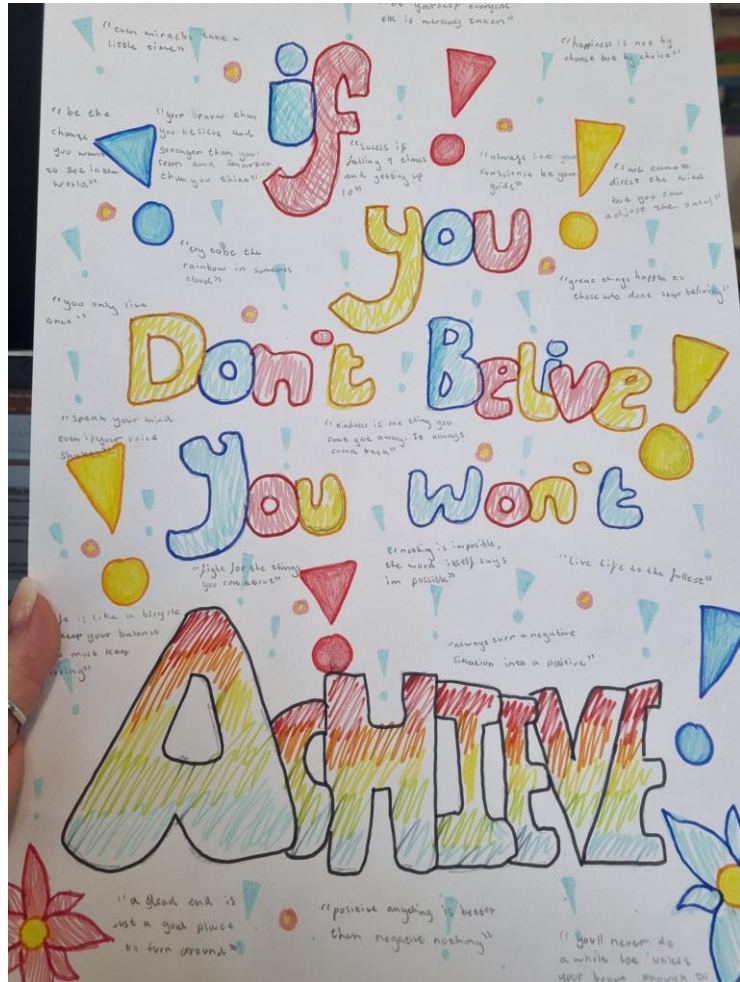 be yourself everyone
else is already taken"
"even miracles take a
little time"
"happiness is not by
chance but by choice"
if
"be the
change
you want
to see in the
world"
"your braver than
you believe and
stronger than you
seem and smarter
than you think"
"sucess is
falling 9 times
and getting up
10"
"always let your
conscience be your
guide"
"we cannot
direct the wind
but you can
adjust the sails"
you
"try to be the
rainbow in someones
cloud"
"great things happen to
those who dont stop beliving"
"you only live
once"
Don't Belive
"speak your mind
even if your voice
"kindness is one thing you
cant give away. It always
comes back"
You won't
"fight for the things
you care about"
"nothing is imposible,
the word itself says
im possible"
"Live life to the fullest"
fe is like a bicycle
keep your balance
must keep
oving"
"always turn a negative
situation into a positive"
ACHIEVE
"a dead end is
just a good place
to turn around"
"positive anything is better
than negative nothing"
"youll never do
a whole lot unless
your brave enough to